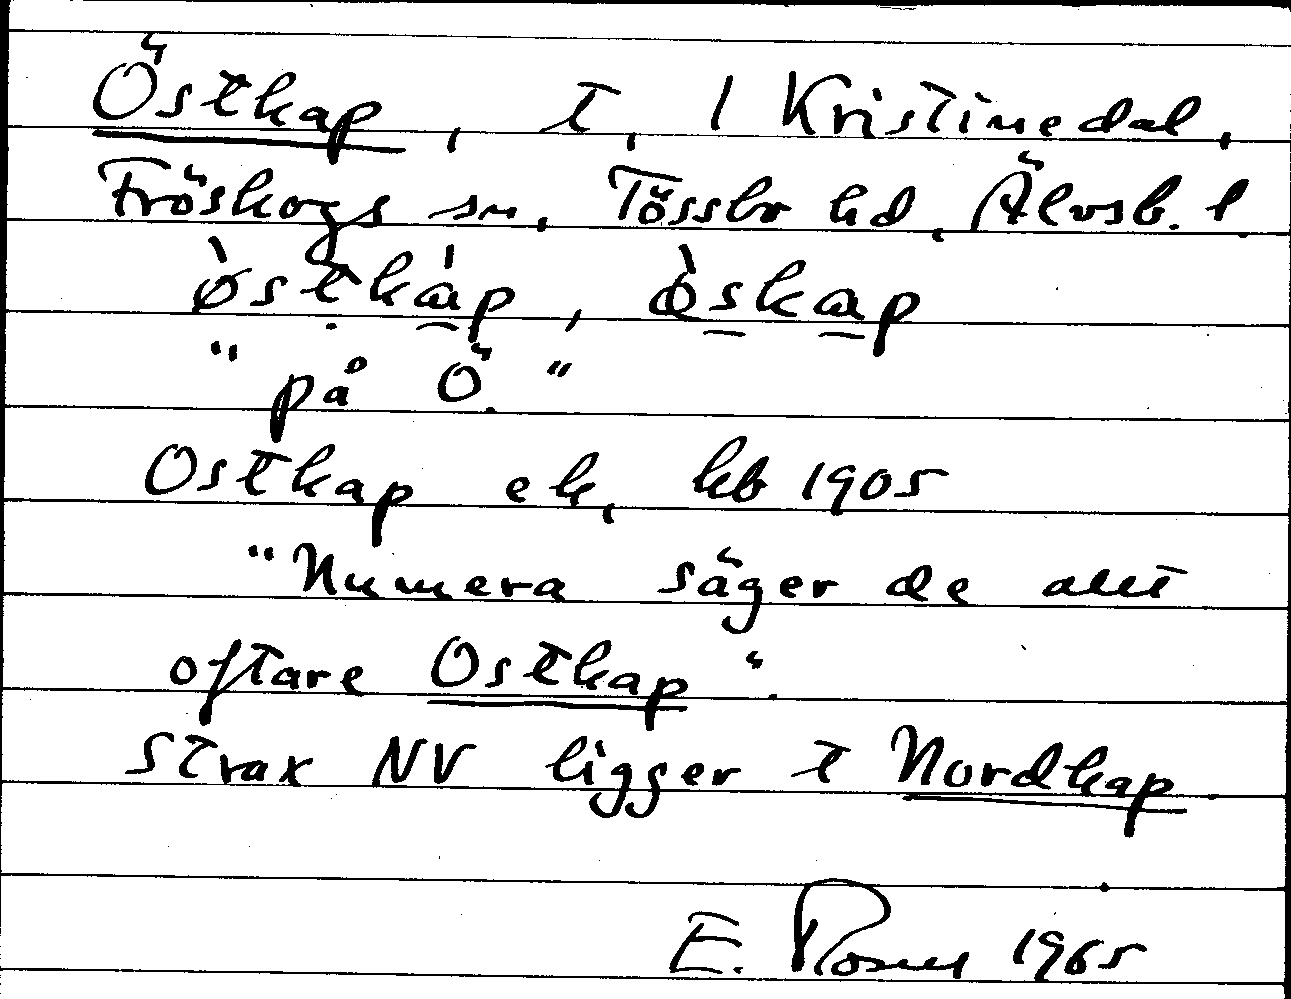 Östkap, t, 1 Kristinedal,
Fröskogs sn, Tössbo hd, Älvsb. l.
ø̀stkáp, ø̀skap
"på Ö."
Ostkap ek, kb 1905
"Numera säger de allt
oftare Ostkap".
Strax NV ligger t Nordkap.
E. Rosell 1965